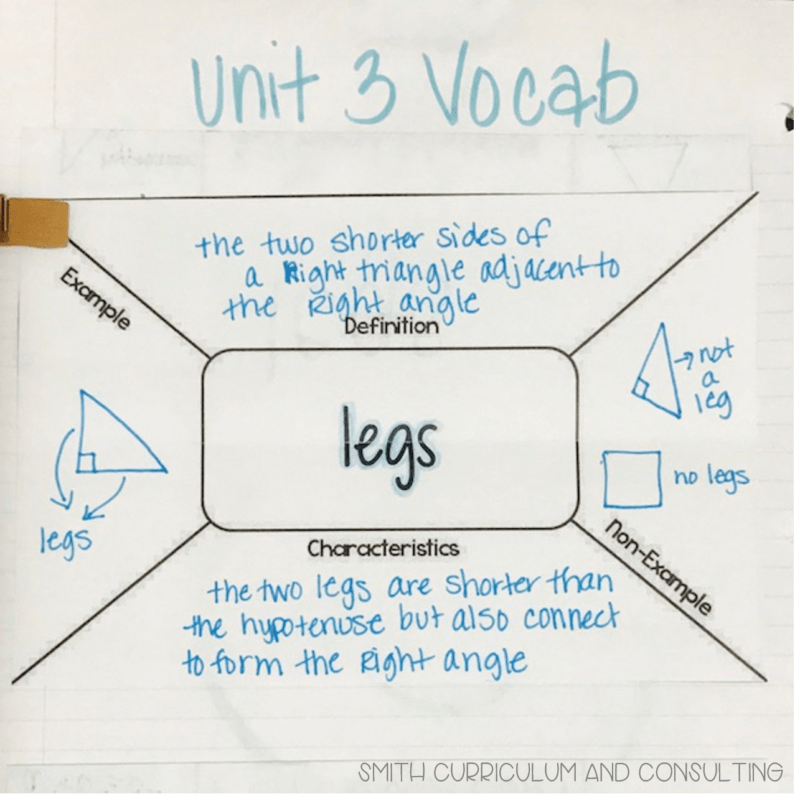 Unit 3 Vocab
the two shorter sides of
a Right triangle adjacent to
the Right angle
Definition
Example
legs
legs
not
a
leg
no legs
Non-Example
Characteristics
the two legs are shorter than
the hypotenuse but also connect
to form the Right angle
SMITH CURRICULUM AND CONSULTING